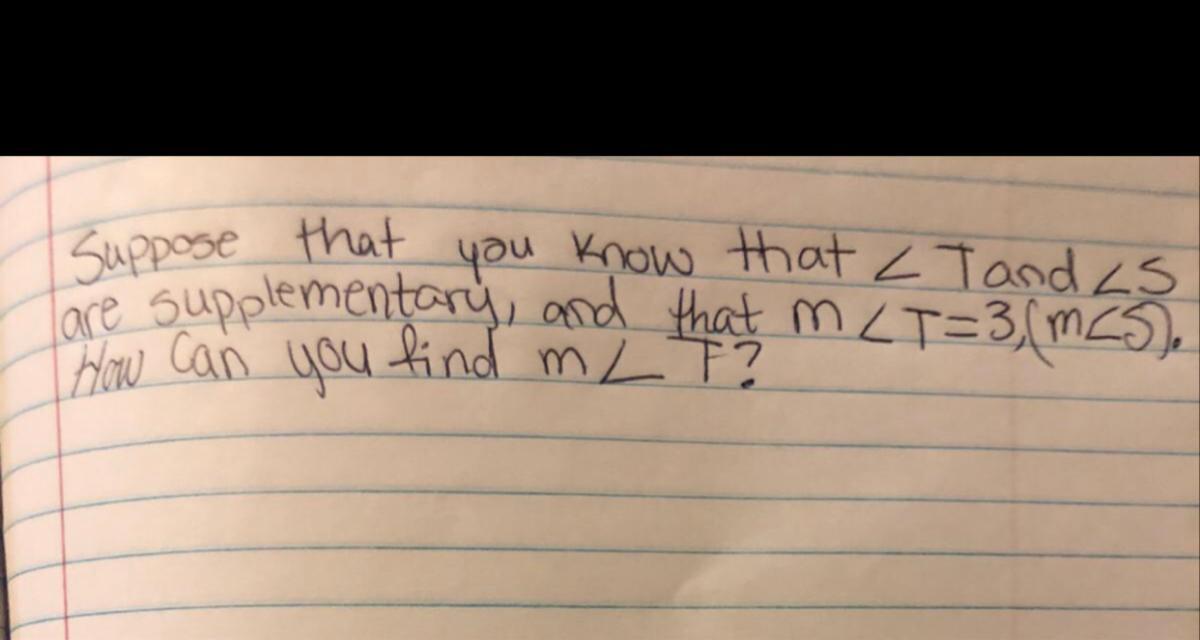 Suppose that you know that ∠ T and ∠S
are supplementary, and that m ∠T=3,(m∠S).
How Can you find m∠ T?